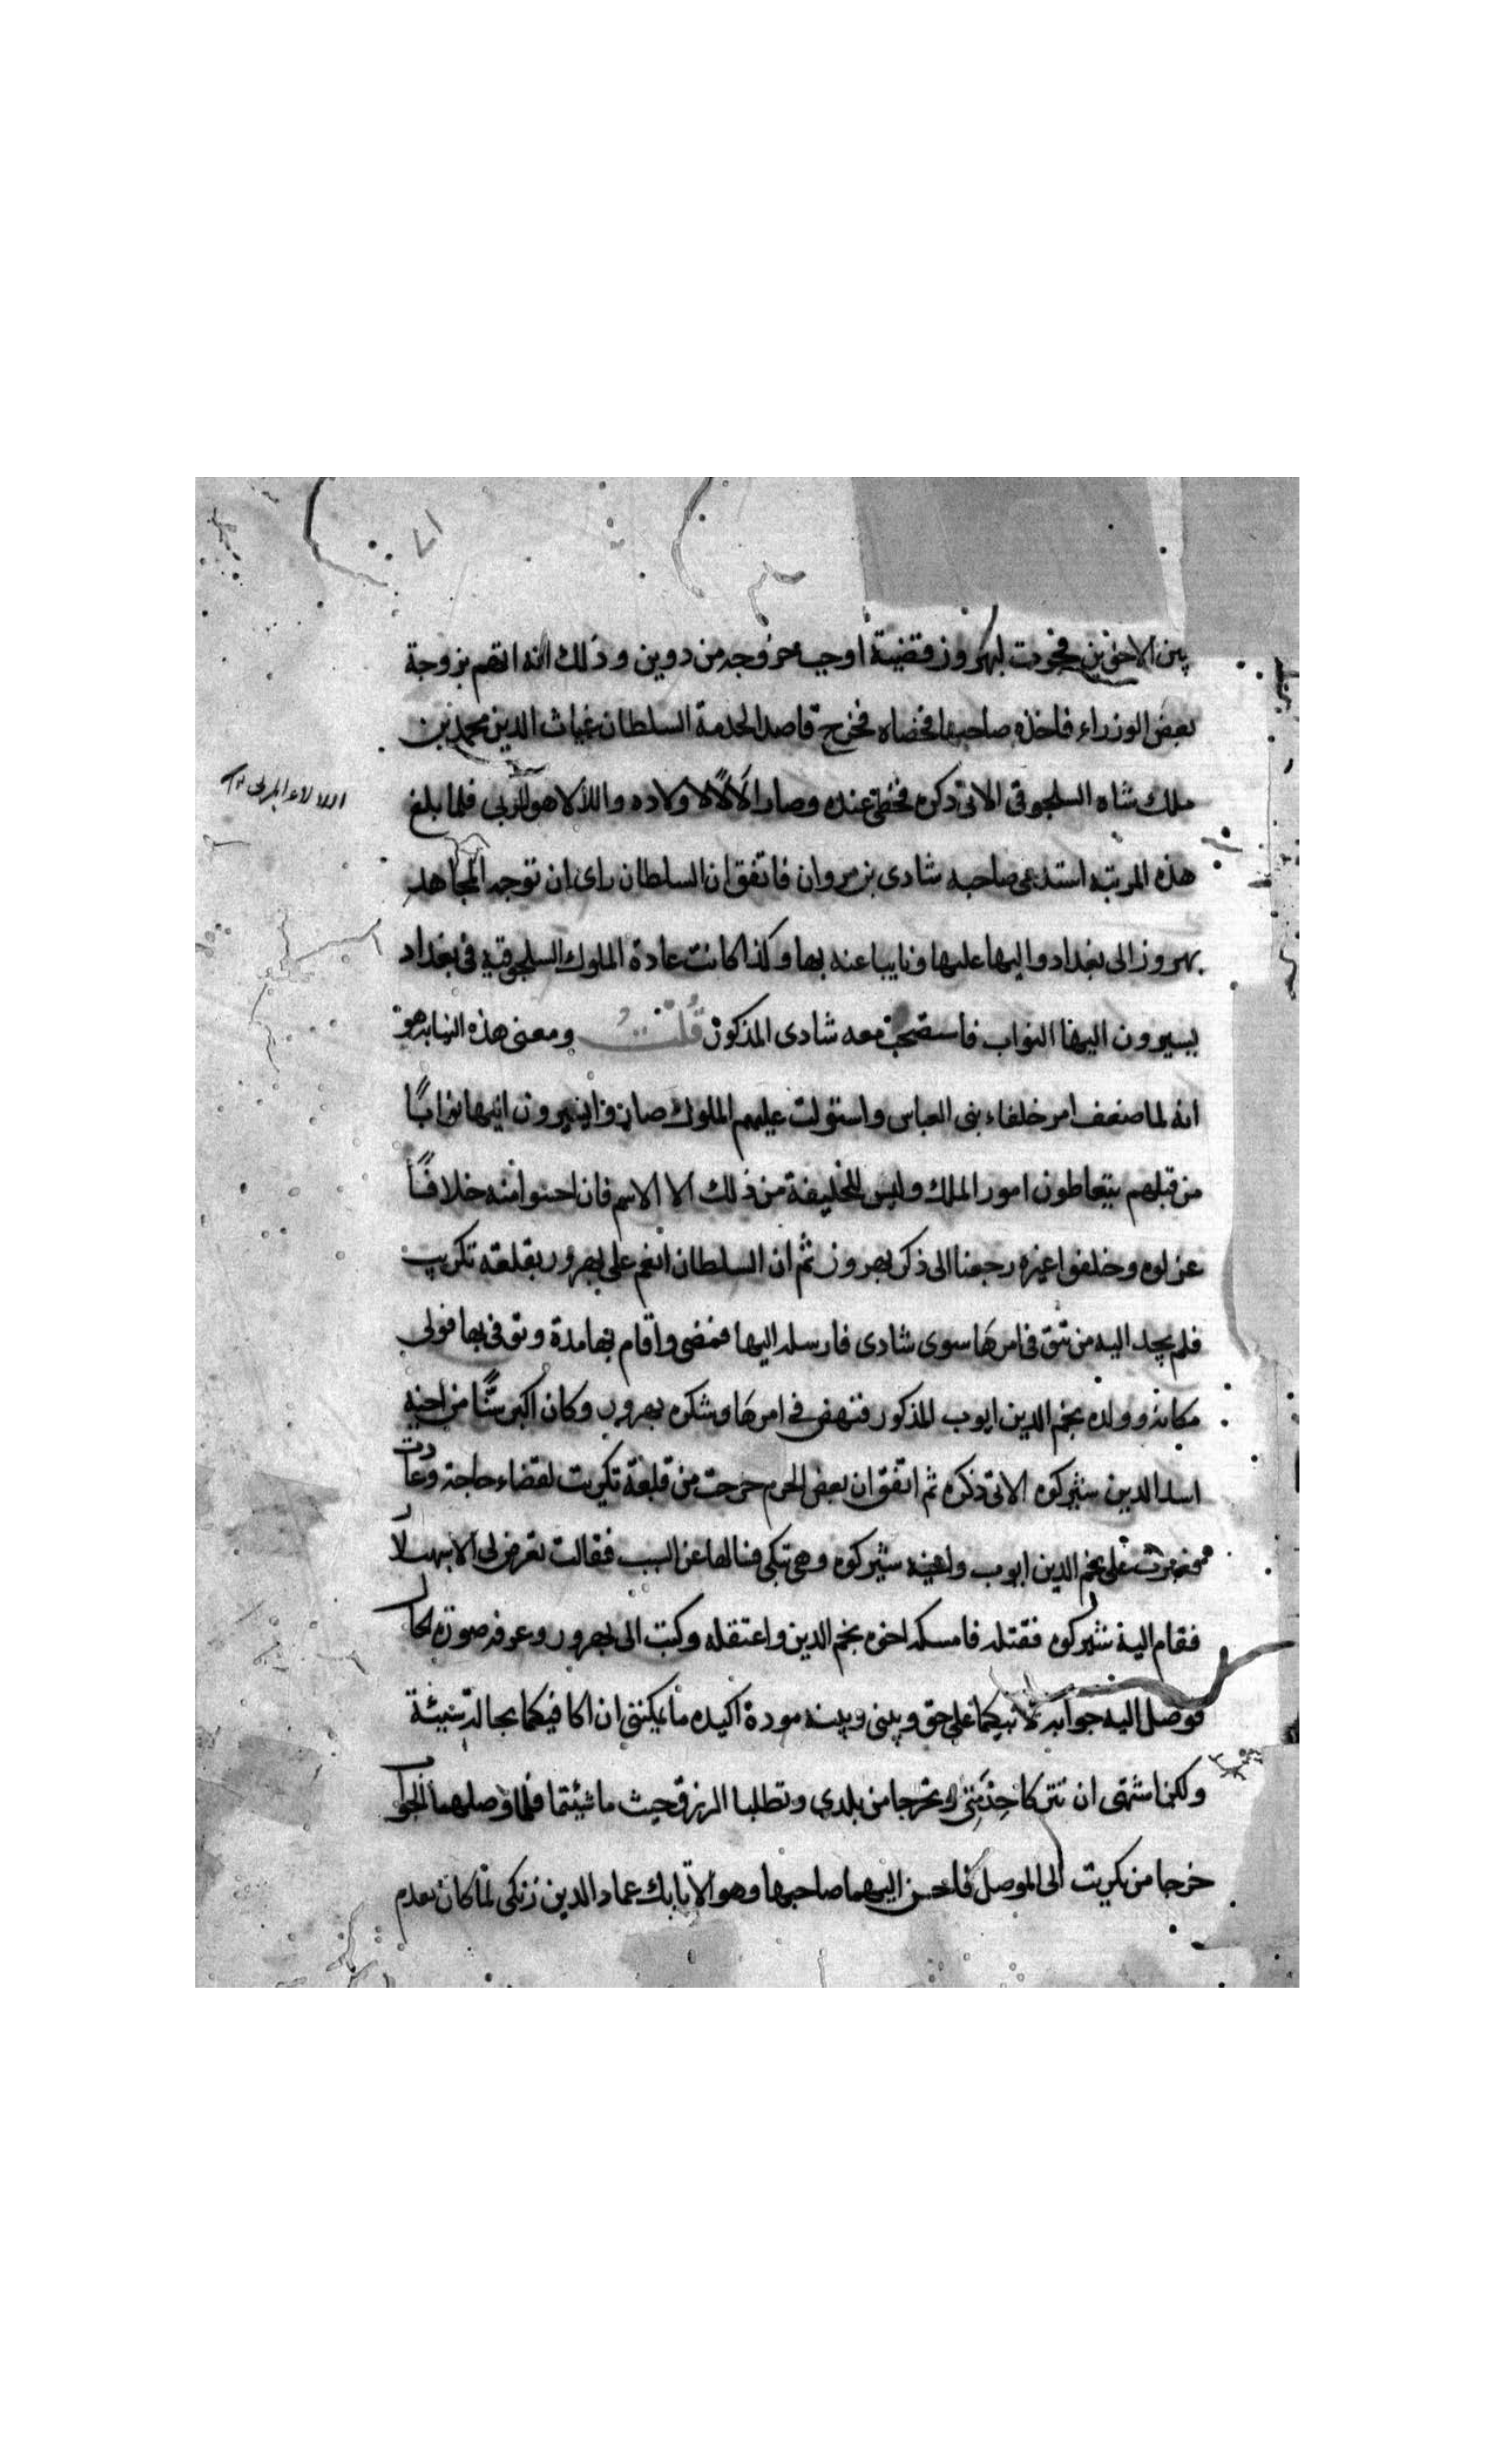 ٧١
بين الاخوين فجرت لبهروز قضية اوجبت خروجه من دوين وذلك انه اتهم بزوجة
بعض الوزراء فاخذه صاحبها فخصاه فخرج قاصدا لخدمة السلطان غياث الدين محمد بن
ملك شاه السلجوقى الاتى ذكره فحظى عنده وصار لالا لاولاده واللالا هو المربى فلما بلغ
اللالا هو المربى
هذه المرتبه استدعى صاحبه شادى بن مروان فاتفق ان السلطان راى ان توجه المجاهد
بهروز الى بغداد واليا عليها ونايبا عنه بها وكذا كانت عادة الملوك السلجوقيه فى بغداد
يسيرون اليها النواب فاستصحب معه شادى المذكور قلت ومعنى هذه النيابه هو
انه لما ضعف امر خلفاء بنى العباس واستولت عليهم الملوك صاروا يسيرون اليها نوابًا
من قبلهم يتعاطون امور الملك وليس للخليفة من ذلك الا الاسم فان احسوا منه خلافًا
عزلوه وخلفوا غيره رجعنا الى ذكر بهروز ثم ان السلطان انعم على بهروز بقلعة تكريت
فلم يجد اليه من يثق فى امرها سوى شادى فارسله اليها فمضى واقام بها مدة وتوفى بها فولى
مكانه ولده نجم الدين ايوب المذكور فنهض فى امرها وشكره بهروز وكان اكبر سنًّا من اخيه
اسد الدين شيركوه الاتى ذكره ثم اتفق ان بعض الحرم خرجت من قلعة تكريت لقضاء حاجة وعادت
فعبرت على نجم الدين ايوب واخيه شيركوه وهى تبكى فسالها عن السبب فقالت تعرض لى الاسهسلار
فقام اليه شيركوه فقتله فامسكه اخوه نجم الدين واعتقله وكتب الى بهروز وعرفه صورة الحال
فوصل اليه جوابه لابيكما على حق وبينى وبينه مودة اكيده ما يمكننى ان اكافيكما بحالة سيئة
ولكن اشتهى ان تتركا خدمتى وتخرجا من بلدى وتطلبا الرزق حيث ما شيئتما فلما وصلهما الجواب
خرجا من تكريت الى الموصل فاحسن اليهما صاحبها وهو الاتابك عماد الدين زنكى لما كان تقدم